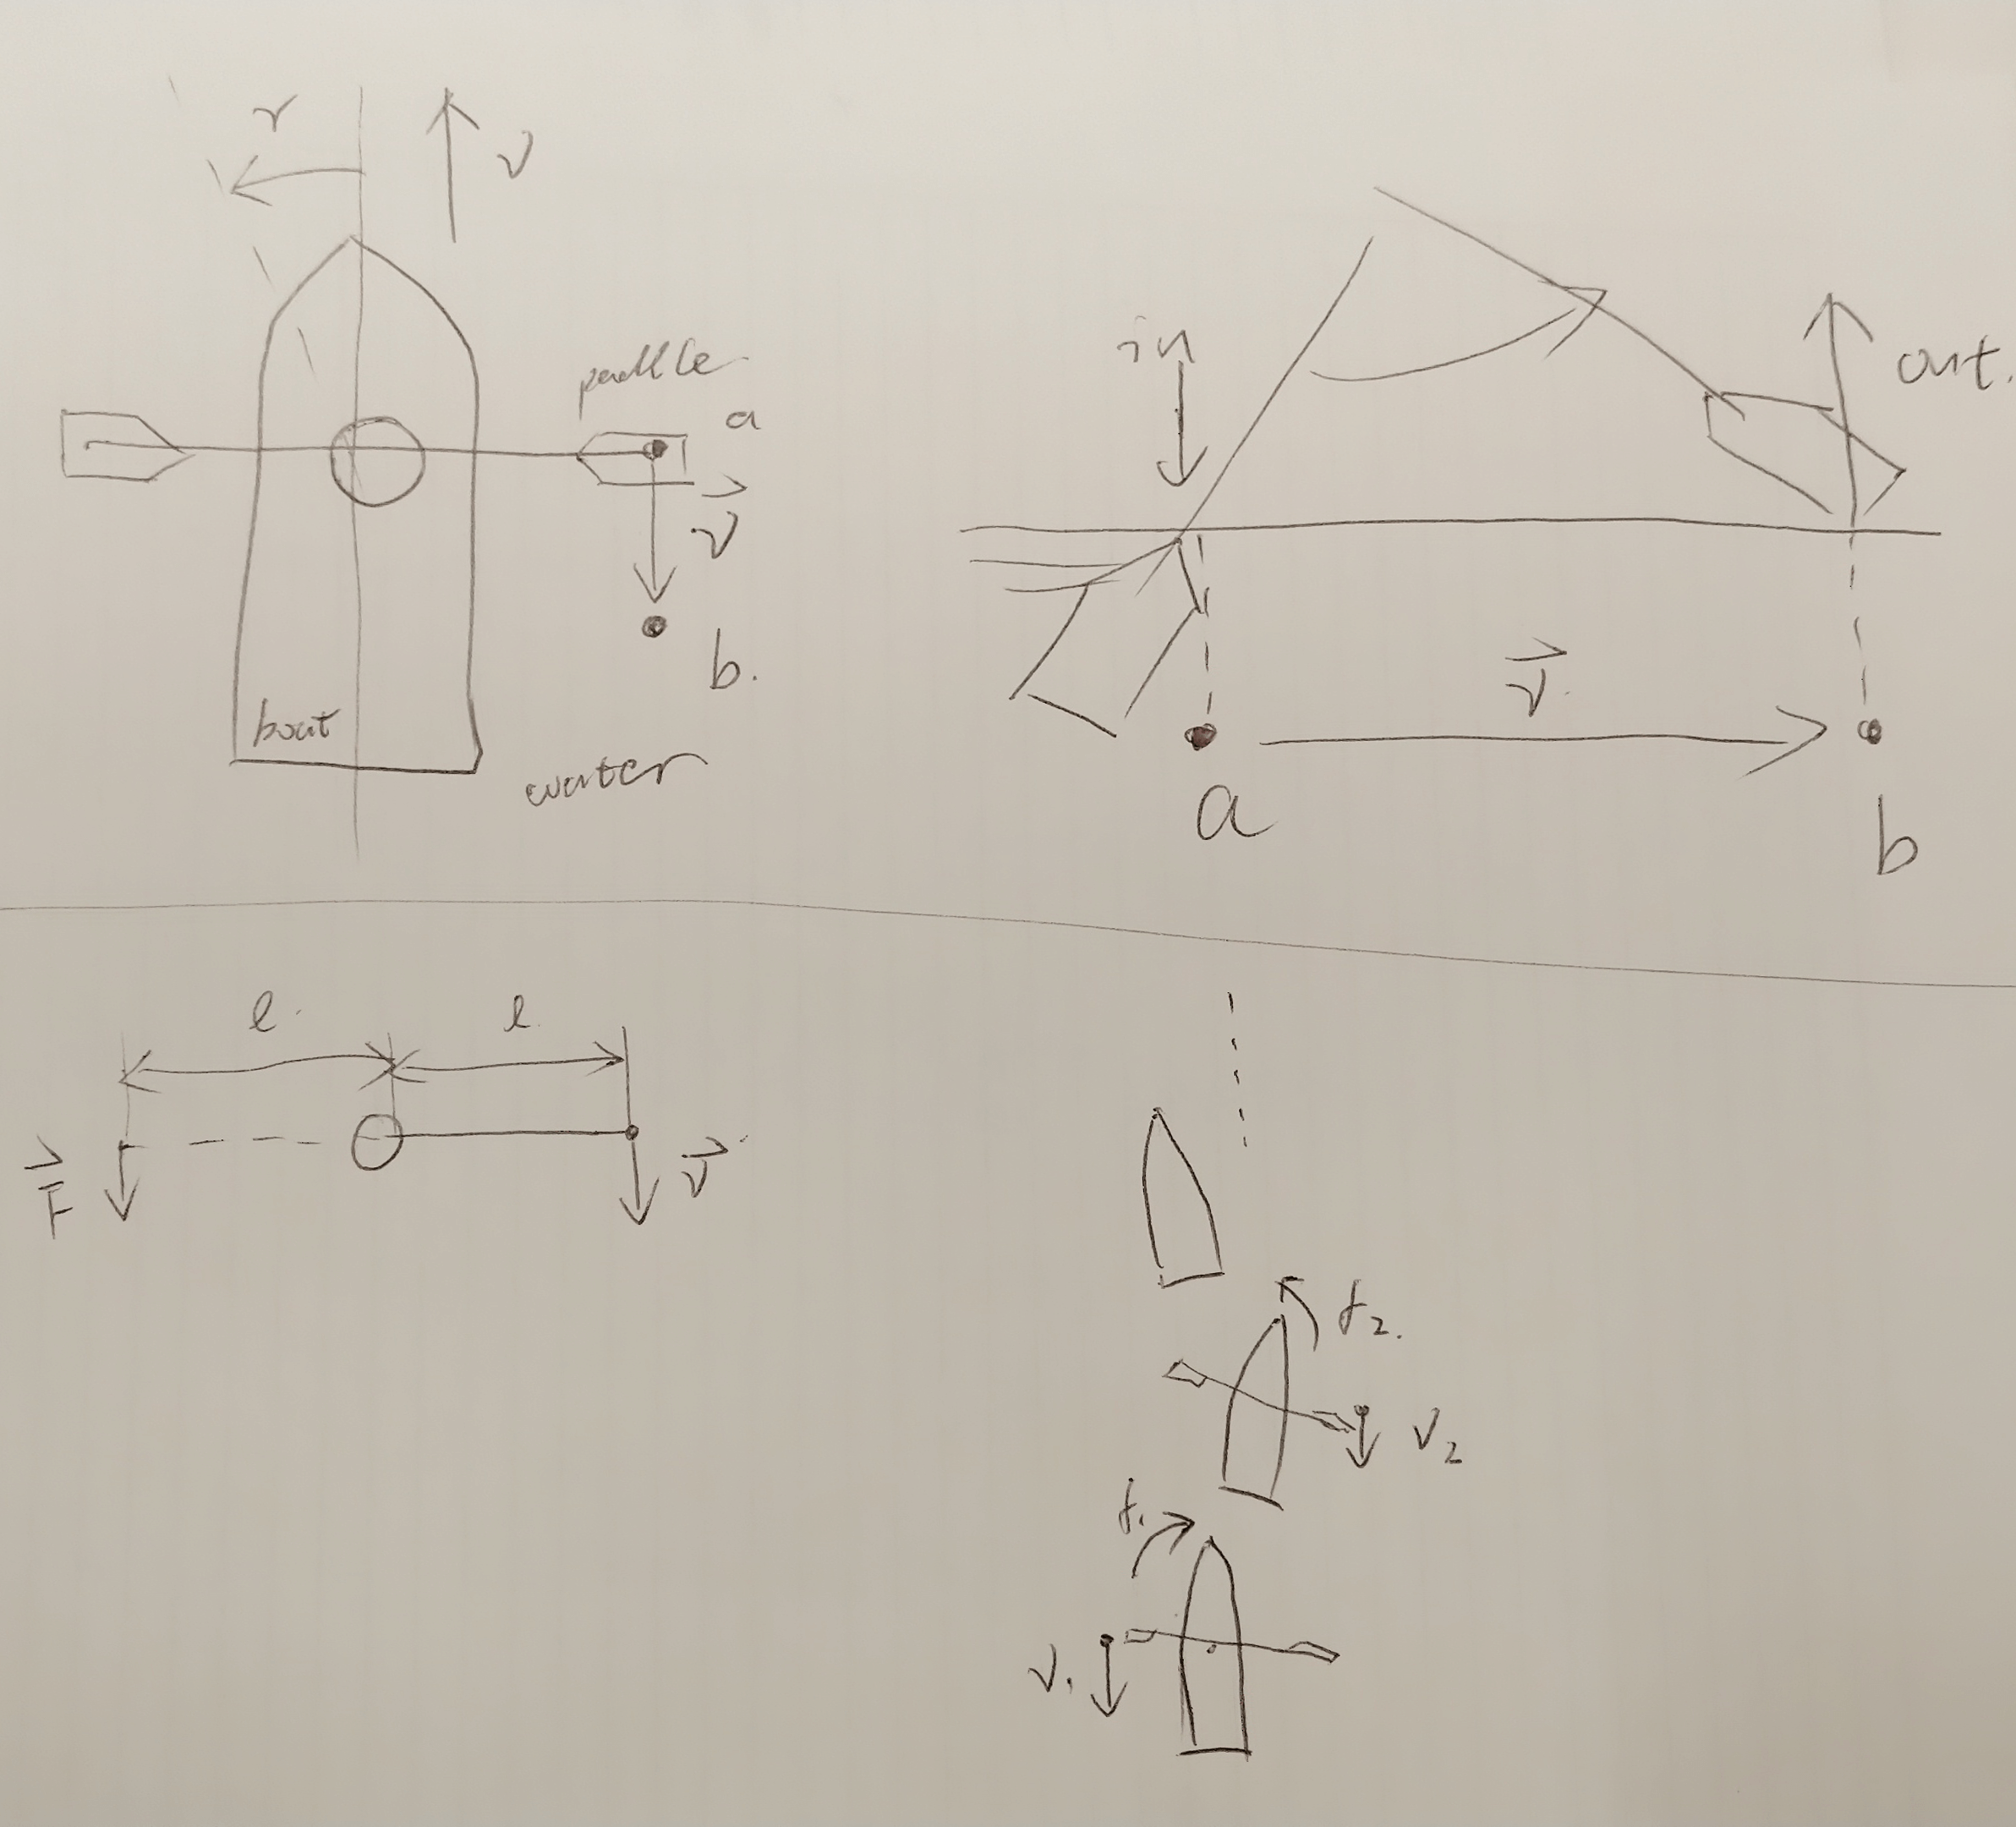 r
v
paddle
a
v
b.
boat
water
in
out.
v.
a
b
l.
l.
F
v
r2.
v2
r1
v1